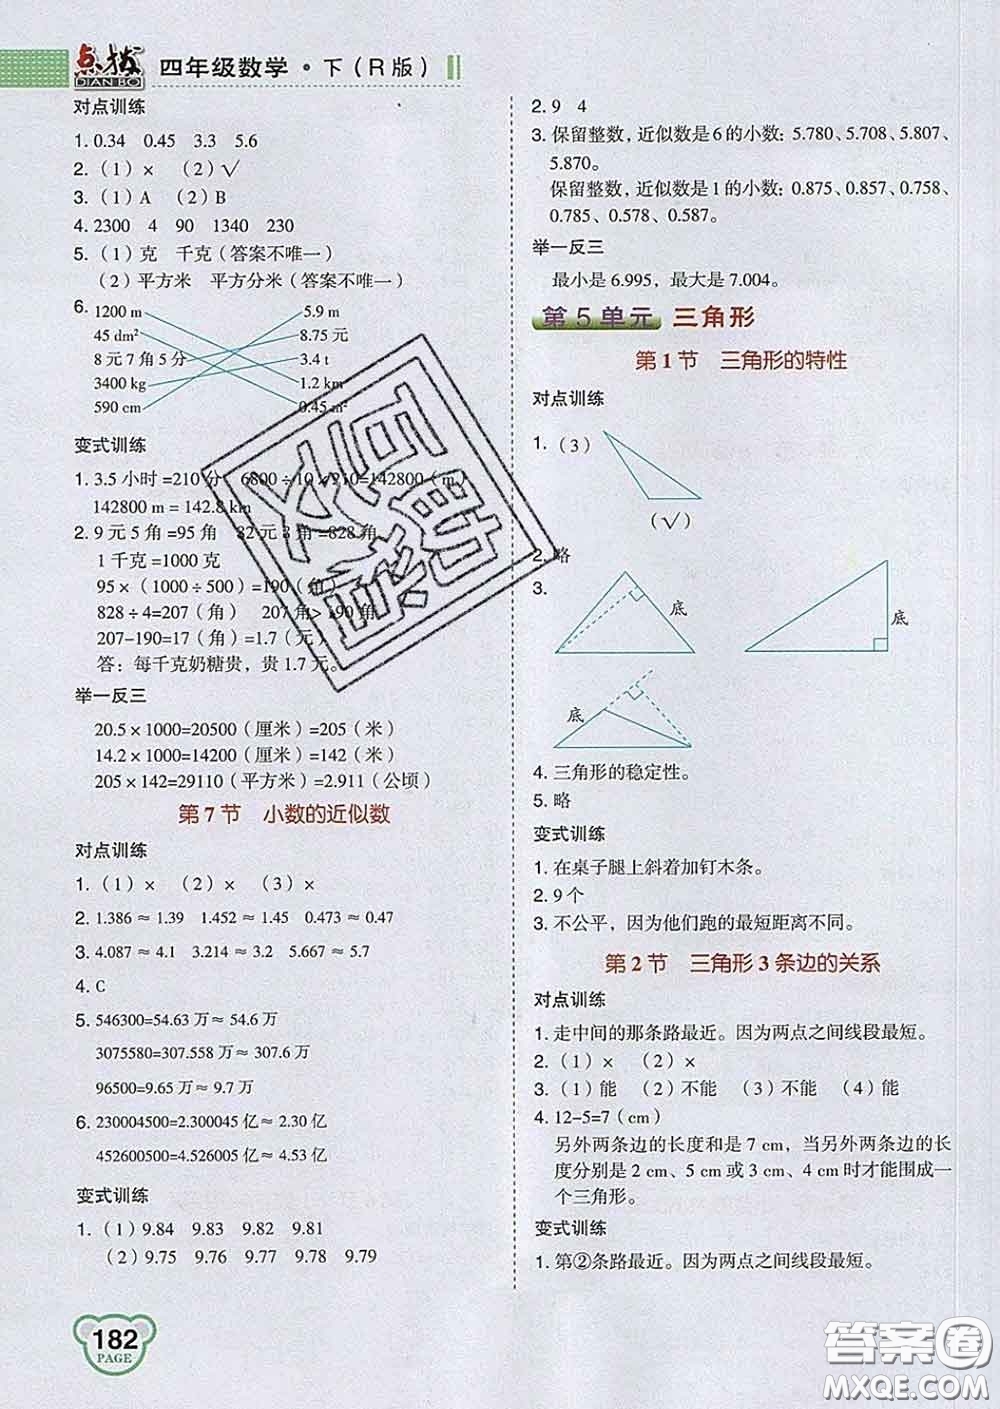 点拨
DIAN BO
四年级数学·下(R版)
对点训练
1. 0.34 0.45 3.3 5.6
2.(1)× (2)√
3.(1)A (2)B
4. 2300 4 90 1340 230
5.(1)克 千克(答案不唯一)
(2)平方米 平方分米(答案不唯一)
6.
1200 m 5.9 m
45 dm² 8.75 元
8 元 7 角 5 分 3.4 t
3400 kg 1.2 km
590 cm 0.45 m²
变式训练
1. 3.5 小时 =210 分 6800÷10×210=142800(m)
142800 m = 142.8 km
2. 9 元 5 角 =95 角 82 元 8 角 =828 角
1 千克 =1000 克
95×(1000÷500)=190(角)
828÷4=207(角) 207 角>190 角
207-190=17(角)=1.7(元)
答:每千克奶糖贵,贵 1.7 元。
举一反三
20.5×1000=20500(厘米)=205(米)
14.2×1000=14200(厘米)=142(米)
205×142=29110(平方米)=2.911(公顷)
第 7 节 小数的近似数
对点训练
1.(1)× (2)× (3)×
2. 1.386≈1.39 1.452≈1.45 0.473≈0.47
3. 4.087≈4.1 3.214≈3.2 5.667≈5.7
4. C
5. 546300=54.63 万≈54.6 万
3075580=307.558 万≈307.6 万
96500=9.65 万≈9.7 万
6. 230004500=2.300045 亿≈2.30 亿
452600500=4.526005 亿≈4.53 亿
变式训练
1.(1)9.84 9.83 9.82 9.81
(2)9.75 9.76 9.77 9.78 9.79
182
PAGE
2. 9 4
3. 保留整数,近似数是 6 的小数:5.780、5.708、5.807、
5.870。
保留整数,近似数是 1 的小数:0.875、0.857、0.758、
0.785、0.578、0.587。
举一反三
最小是 6.995,最大是 7.004。
第 5 单元 三角形
第 1 节 三角形的特性
对点训练
1.(3)
(√)
2. 略
3.
底
底
底
4. 三角形的稳定性。
5. 略
变式训练
1. 在桌子腿上斜着加钉木条。
2. 9 个
3. 不公平,因为他们跑的最短距离不同。
第 2 节 三角形 3 条边的关系
对点训练
1. 走中间的那条路最近。因为两点之间线段最短。
2.(1)× (2)×
3.(1)能 (2)不能 (3)不能 (4)能
4. 12-5=7(cm)
另外两条边的长度和是 7 cm,当另外两条边的长
度分别是 2 cm、5 cm 或 3 cm、4 cm 时才能围成一
个三角形。
变式训练
1. 第②条路最近。因为两点之间线段最短。
答案圈
MXQE.COM